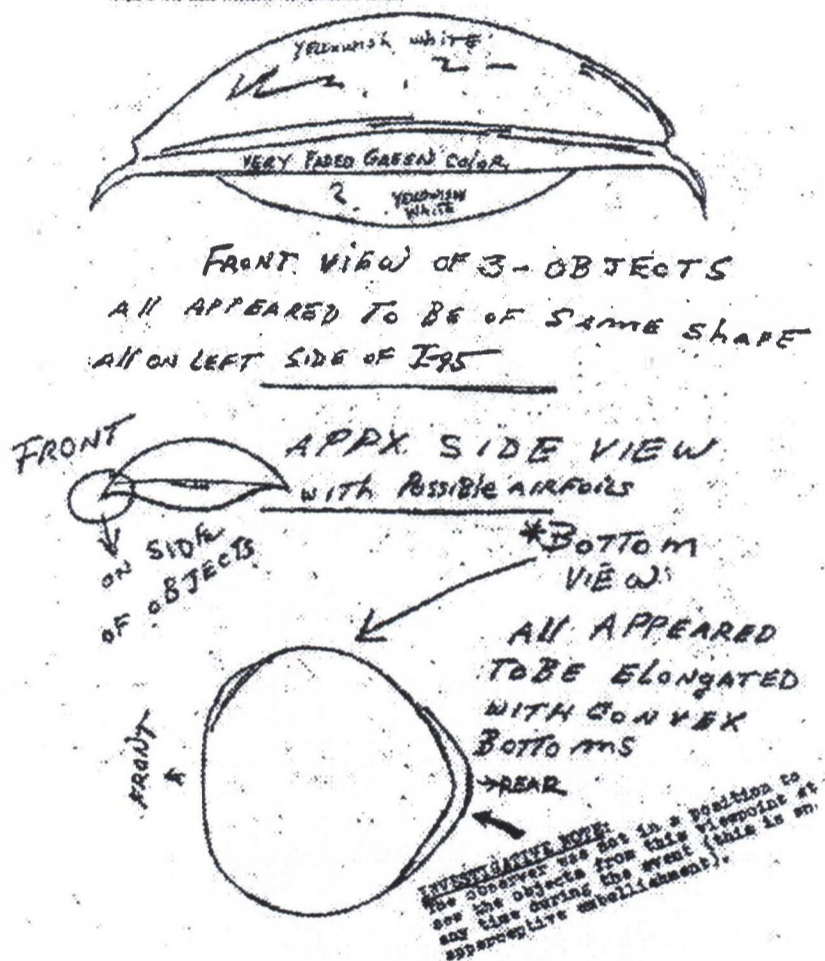 YELLOWISH WHITE
VERY FADED GREEN COLOR
?
YELLOWISH
WHITE
FRONT VIEW OF 3-OBJECTS
All APPEARED TO BE OF SAME SHAPE
All ON LEFT SIDE OF I-95
FRONT
APPX. SIDE VIEW
WITH POSSIBLE AIRFOILS
ON SIDE
OF OBJECTS
*BOTTOM
VIEW:
All APPEARED
TO BE ELONGATED
WITH CONVEX
BOTTOMS
FRONT
REAR
INVESTIGATIVE NOTE:
The observer was not in a position to
see the objects from this viewpoint at
any time during the event (this is an
apperceptive embellishment).